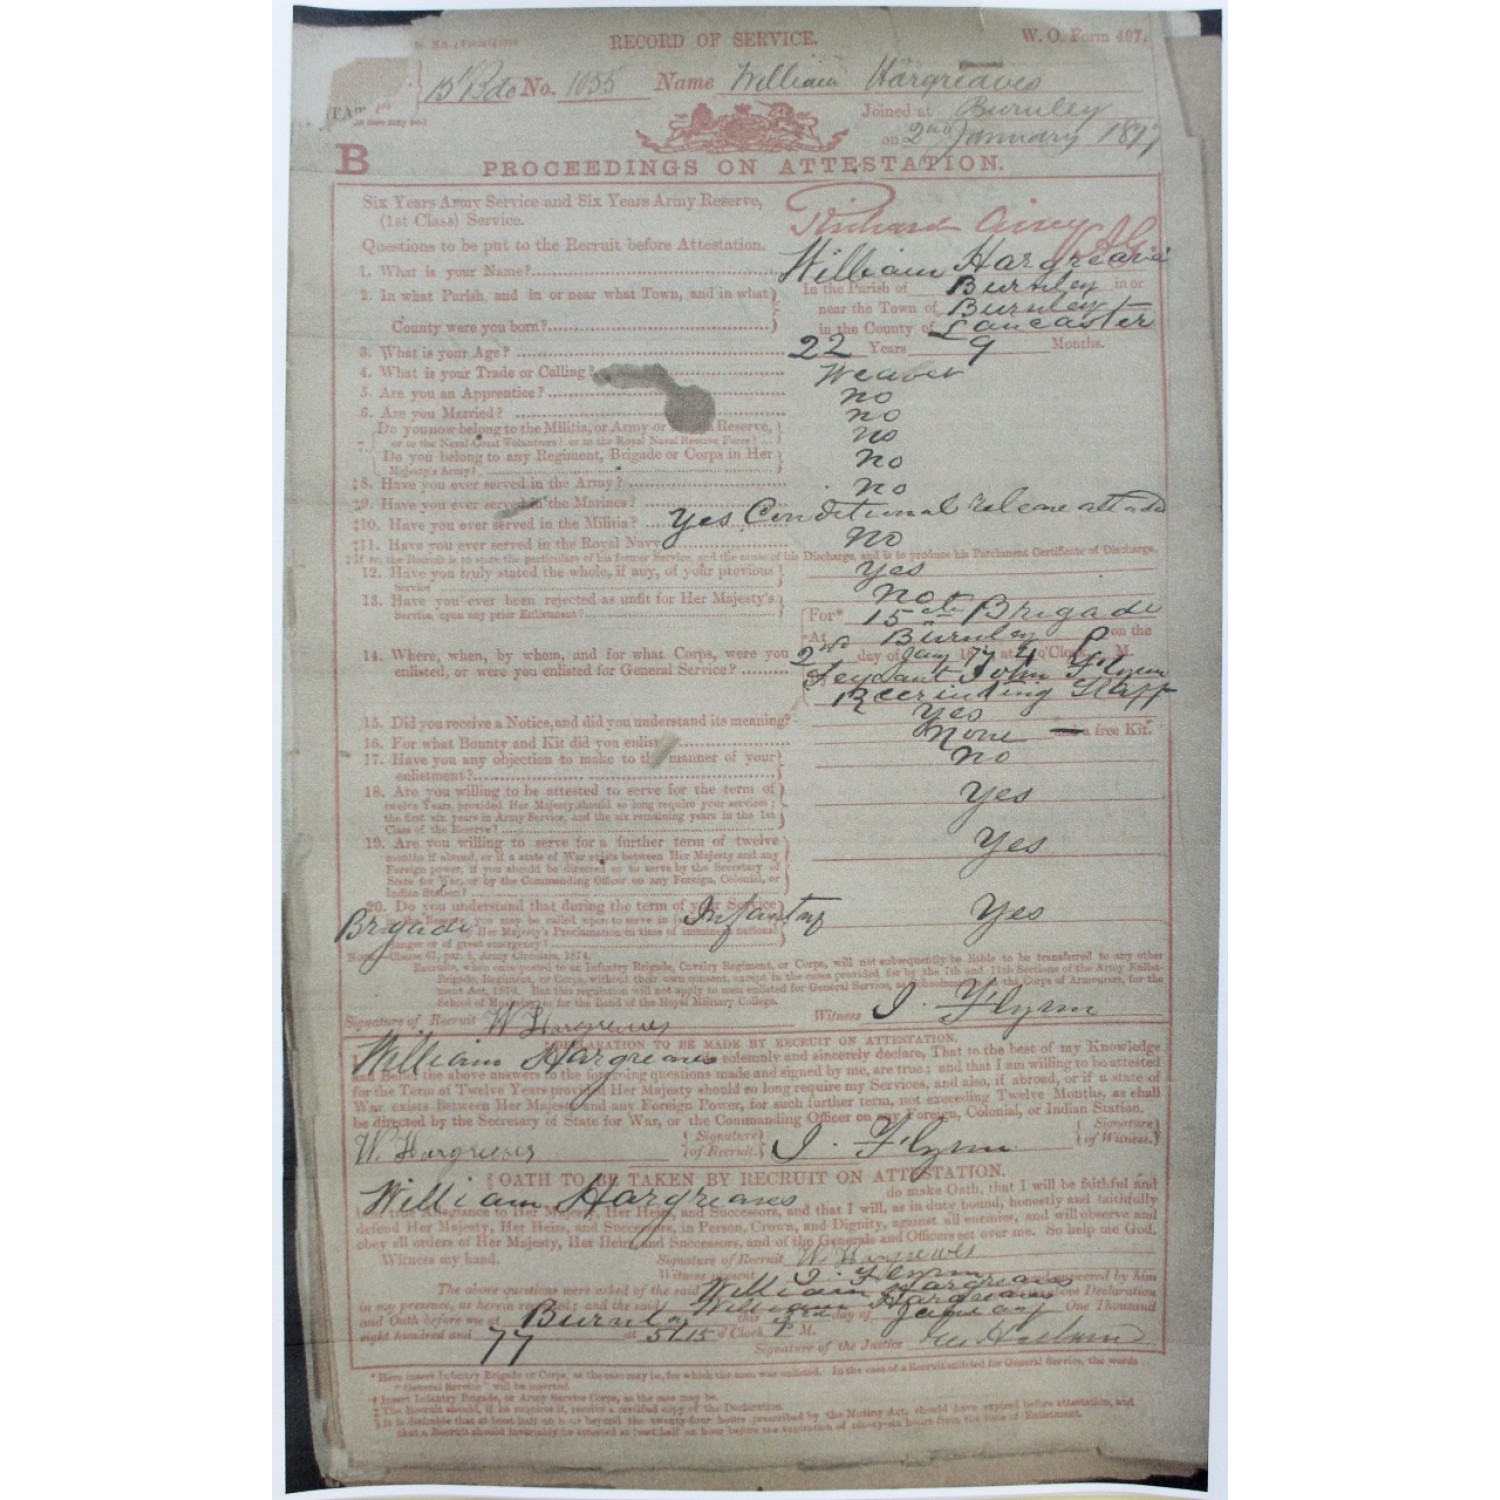 RECORD OF SERVICE.
W. O. Form 497.
15 Bde No. 1055 Name William Hargreaves
Joined at Burnley
on 2nd January 1877
B
PROCEEDINGS ON ATTESTATION.
Six Years Army Service and Six Years Army Reserve,
(1st Class) Service.
Richard Airey A G
Questions to be put to the Recruit before Attestation.
1. What is your Name? William Hargreaves
2. In what Parish, and in or near what Town, and in what County were you born?
In the Parish of Burnley in or
near the Town of Burnley
in the County of Lancaster
3. What is your Age? 22 Years 9 Months.
4. What is your Trade or Calling? Weaver
5. Are you an Apprentice? no
6. Are you Married? no
7. Do you now belong to the Militia, or Army or Reserve, no
or to the Naval Coast Volunteers? or to the Royal Naval Reserve Force?
Do you belong to any Regiment, Brigade or Corps in Her no
Majesty's Army?
‡8. Have you ever served in the Army? no
‡9. Have you ever served in the Marines?
‡10. Have you ever served in the Militia? Yes Conditional release
‡11. Have you ever served in the Royal Navy no
‡If so, the Recruit is to state the particulars of his former Service, and the cause of his Discharge, and is to produce his Parchment Certificate of Discharge.
12. Have you truly stated the whole, if any, of your previous Yes
Service
13. Have you ever been rejected as unfit for Her Majesty's
Service, upon any prior Enlistment?
14. Where, when, by whom, and for what Corps, were you
enlisted, or were you enlisted for General Service?
For* 15 Brigade
At Burnley on the
2nd day of Jany 1877 at 4 o'Clock P M.
John Flynn
Recruiting Staff
15. Did you receive a Notice, and did you understand its meaning? Yes
16. For what Bounty and Kit did you enlist None a free Kit.
17. Have you any objection to make to the manner of your no
enlistment?
18. Are you willing to be attested to serve for the term of Yes
twelve Years, provided Her Majesty should so long require your services;
the first six years in Army Service, and the six remaining years in the 1st
Class of the Reserve?
19. Are you willing to serve for a further term of twelve Yes
months if abroad, or if a state of War exists between Her Majesty and any
Foreign power, if you should be directed so to serve by the Secretary of
State for War, or by the Commanding Officer on any Foreign, Colonial, or
Indian Station?
20. Do you understand that during the term of your Service Yes
in the Reserve, you may be called upon to serve in Infantry
Brigade by Her Majesty's Proclamation in time of imminent national
danger or of great emergency?
Note.—Clause 61, par. 8, Army Circulars, 1874.
Recruits, when once posted to an Infantry Brigade, Cavalry Regiment, or Corps, will not subsequently be liable to be transferred to any other
Brigade, Regiment, or Corps, without their own consent, except in the cases provided for by the 7th and 11th Sections of the Army Enlist-
ment Act, 1870. But this regulation will not apply to men enlisted for General Service, as Schoolmasters, the Corps of Armourers, for the
School of or for the Band of the Royal Military College.
Signature of Recruit W Hargreaves Witness J. Flynn
‡DECLARATION TO BE MADE BY RECRUIT ON ATTESTATION.
I William Hargreaves do solemnly and sincerely declare, That to the best of my Knowledge
and Belief the above answers to the foregoing questions made and signed by me, are true; and that I am willing to be attested
for the Term of Twelve Years provided Her Majesty should so long require my Services, and also, if abroad, or if a state of
War exists Between Her Majesty and any Foreign Power, for such further term, not exceeding Twelve Months, as shall
be directed by the Secretary of State for War, or the Commanding Officer on any Foreign, Colonial, or Indian Station.
W. Hargreaves {Signature of Recruit.} J. Flynn {Signature of Witness.}
§OATH TO BE TAKEN BY RECRUIT ON ATTESTATION.
I William Hargreaves do make Oath, that I will be faithful and
bear true Allegiance to Her Majesty, Her Heirs, and Successors, and that I will, as in duty bound, honestly and faithfully
defend Her Majesty, Her Heirs, and Successors, in Person, Crown, and Dignity, against all enemies, and will observe and
obey all orders of Her Majesty, Her Heirs, and Successors, and of the Generals and Officers set over me. So help me God.
Witness my hand. Signature of Recruit W Hargreaves
Witness present J. Flynn
The above questions were asked of the said William Hargreaves and answered by him
in my presence, as herein recorded; and the said William Hargreaves made the above Declaration
and Oath before me at Burnley this 3rd day of January One Thousand
eight hundred and 77 at 5/15 o'Clock P M.
Signature of the Justice
* Here insert Infantry Brigade or Corps, as the case may be, for which the man was enlisted. In the case of a Recruit enlisted for General Service, the words
"General Service" will be inserted.
† Insert Infantry Brigade, or Army Service Corps, as the case may be.
‡ The Recruit should, if he requires it, receive a certified copy of the Declaration.
§ It is desirable that at least half an hour beyond the twenty-four hours prescribed by the Mutiny Act, should have expired before attestation, and
that a Recruit should invariably be attested at least half an hour before the expiration of ninety-six hours from the time of Enlistment.